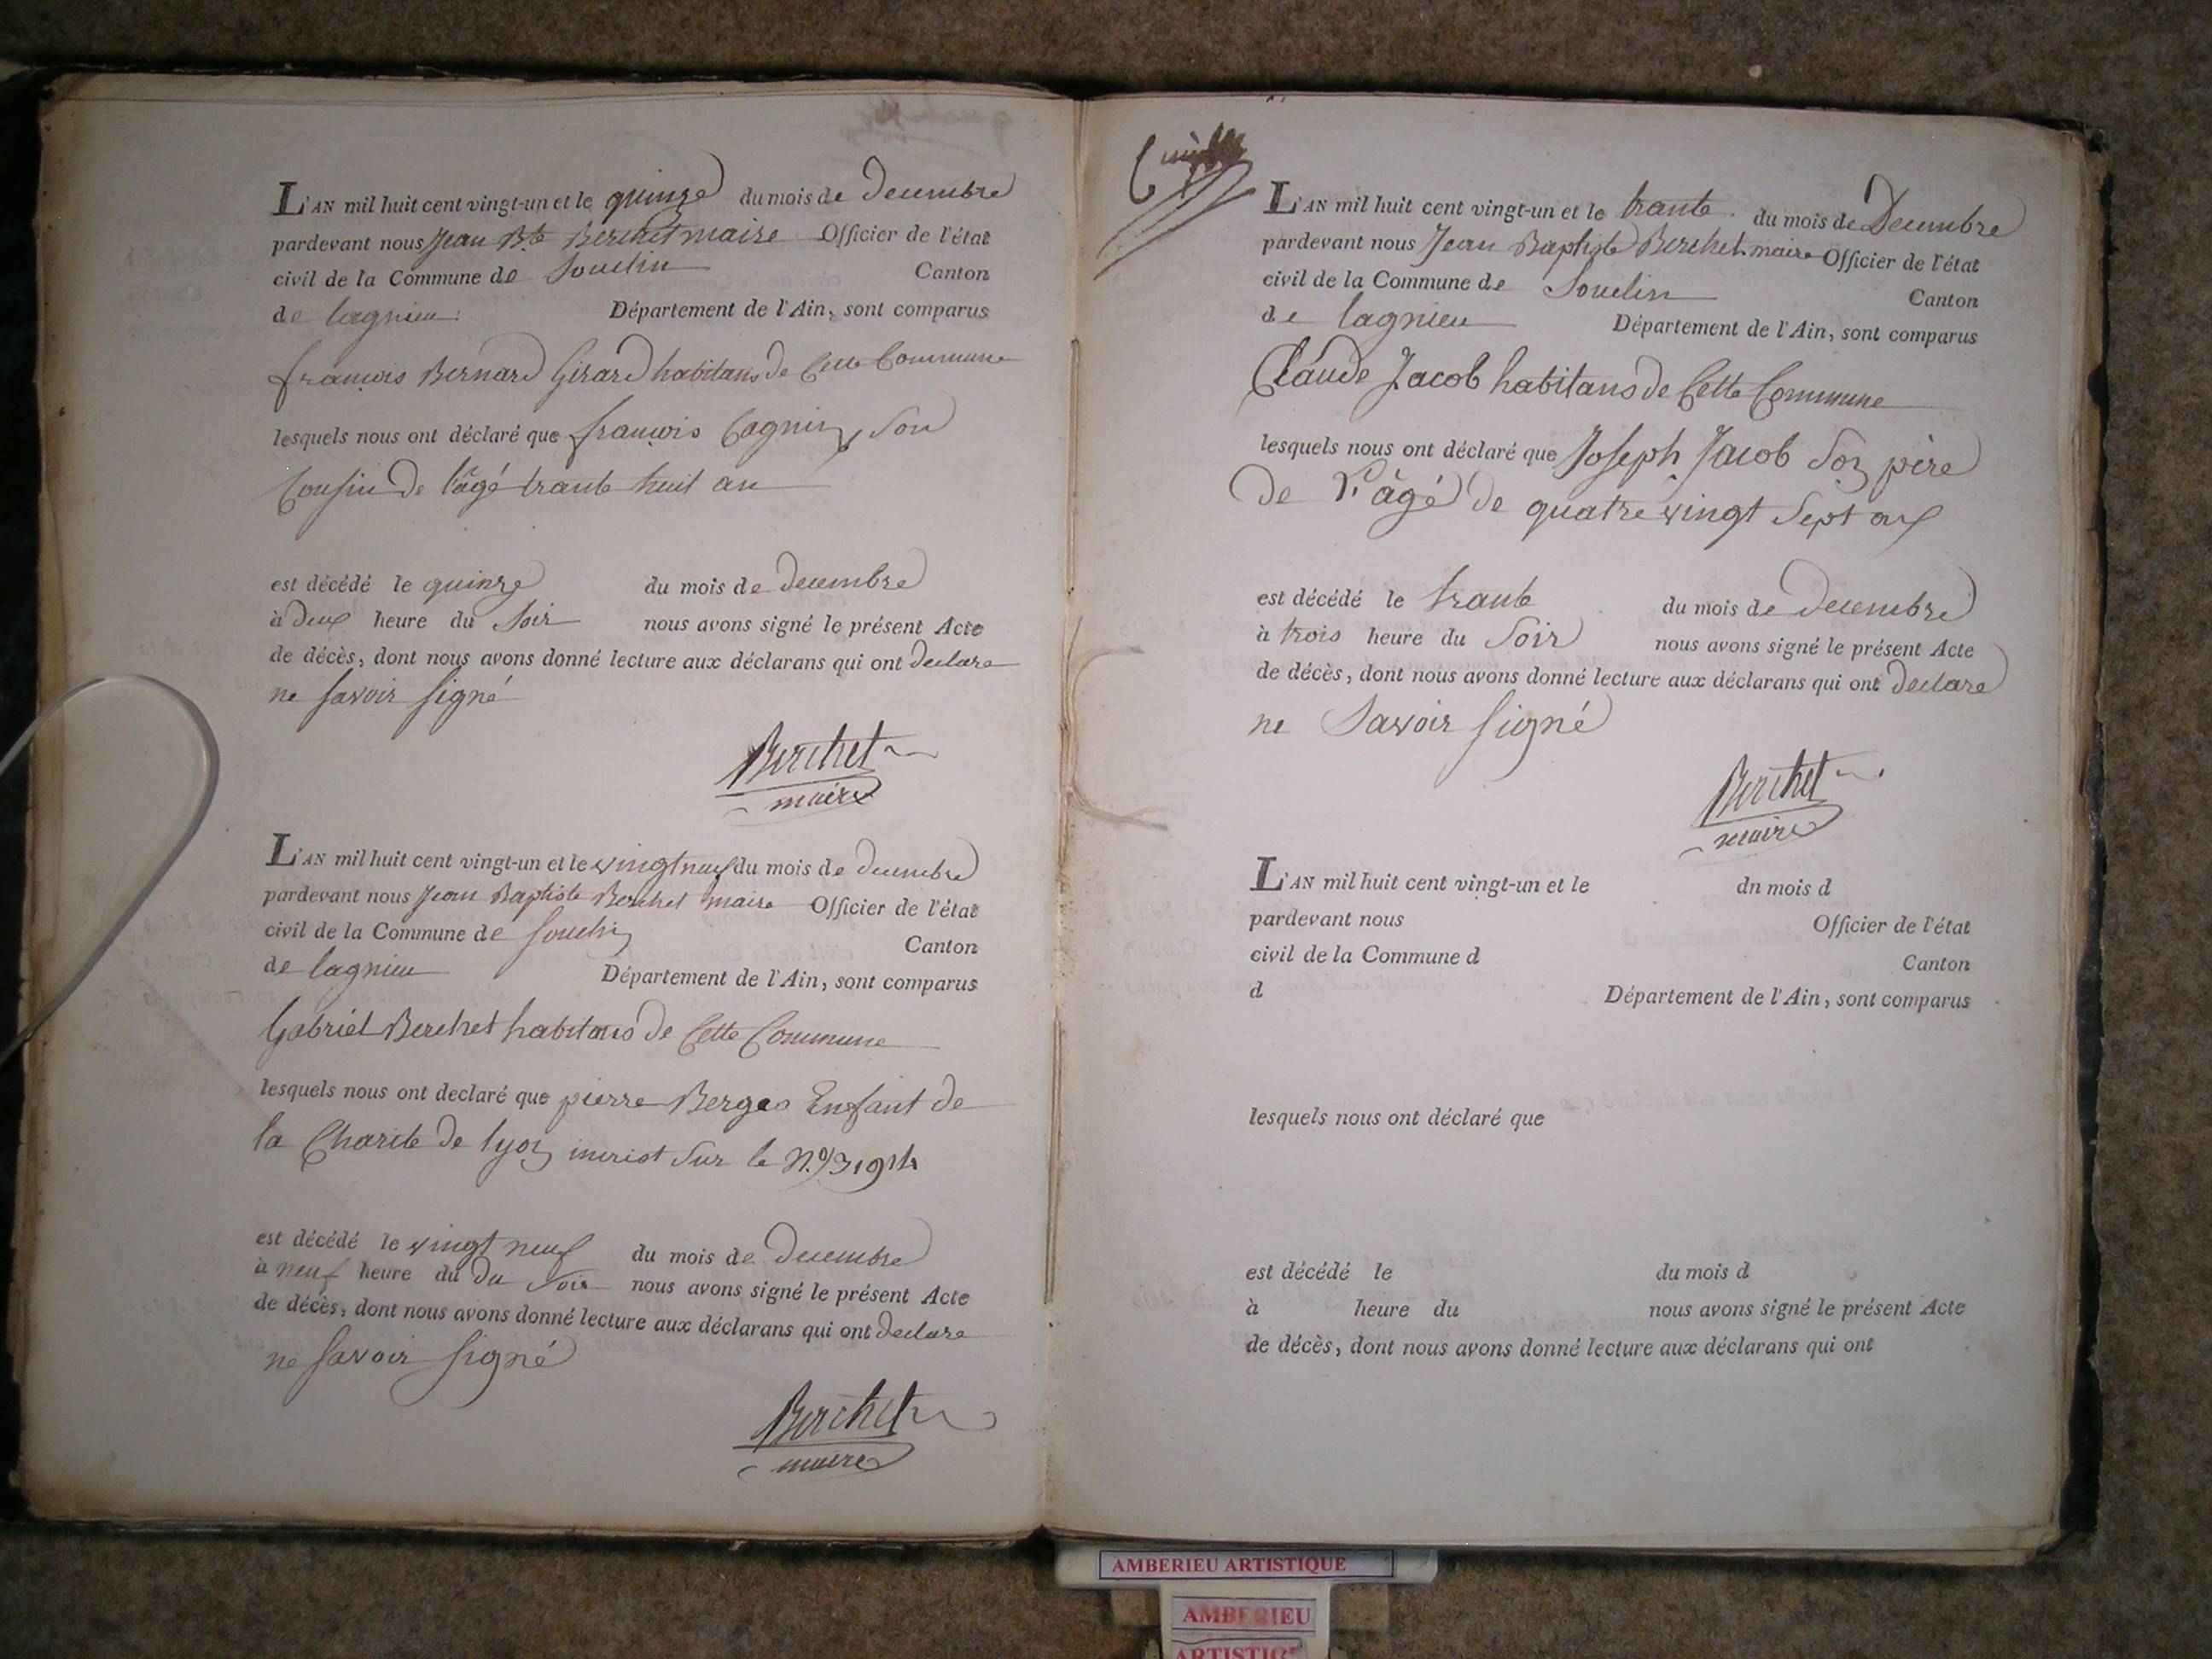 L'AN mil huit cent vingt-un et le quinze du mois de decembre
pardevant nous Jean Bte Berchet maire Officier de l'état
civil de la Commune de Souclin Canton
de lagnieu Département de l'Ain, sont comparus
françois Bernard Girard habitans de Cette Commune
lesquels nous ont déclaré que françois Cagnin Son
Cousin de l'âgé trante huit an
est décédé le quinze du mois de decembre
à deux heure du Soir nous avons signé le présent Acte
de décès, dont nous avons donné lecture aux déclarans qui ont declare
ne Savoir Signé
Berchet
maire
L'AN mil huit cent vingt-un et le vingt neuf du mois de decembre
pardevant nous Jean Baptiste Berchet maire Officier de l'état
civil de la Commune de Souclin Canton
de lagnieu Département de l'Ain, sont comparus
Gabriel Berchet habitans de Cette Commune
lesquels nous ont declaré que pierre Berges Enfant de
la Charite de lyon inscrist Sur le N.º
est décédé le vingt neuf du mois de decembre
à neuf heure du du Soir nous avons signé le présent Acte
de décès, dont nous avons donné lecture aux déclarans qui ont declare
ne Savoir Signé
Berchet
maire
L'AN mil huit cent vingt-un et le trante du mois de Decembre
pardevant nous Jean Baptiste Berchet maire Officier de l'état
civil de la Commune de Souclin Canton
de lagnieu Département de l'Ain, sont comparus
Claude Jacob habitans de Cette Commune
lesquels nous ont déclaré que Joseph Jacob Son père
de L'âgé de quatre vingt Sept ans
est décédé le trante du mois de decembre
à trois heure du Soir nous avons signé le présent Acte
de décès, dont nous avons donné lecture aux déclarans qui ont declare
ne Savoir Signé
Berchet
maire
L'AN mil huit cent vingt-un et le dn mois d
pardevant nous Officier de l'état
civil de la Commune d Canton
d Département de l'Ain, sont comparus
lesquels nous ont déclaré que
est décédé le du mois d
à heure du nous avons signé le présent Acte
de décès, dont nous avons donné lecture aux déclarans qui ont
AMBERIEU ARTISTIQUE
AMBERIEU
ARTISTIQUE